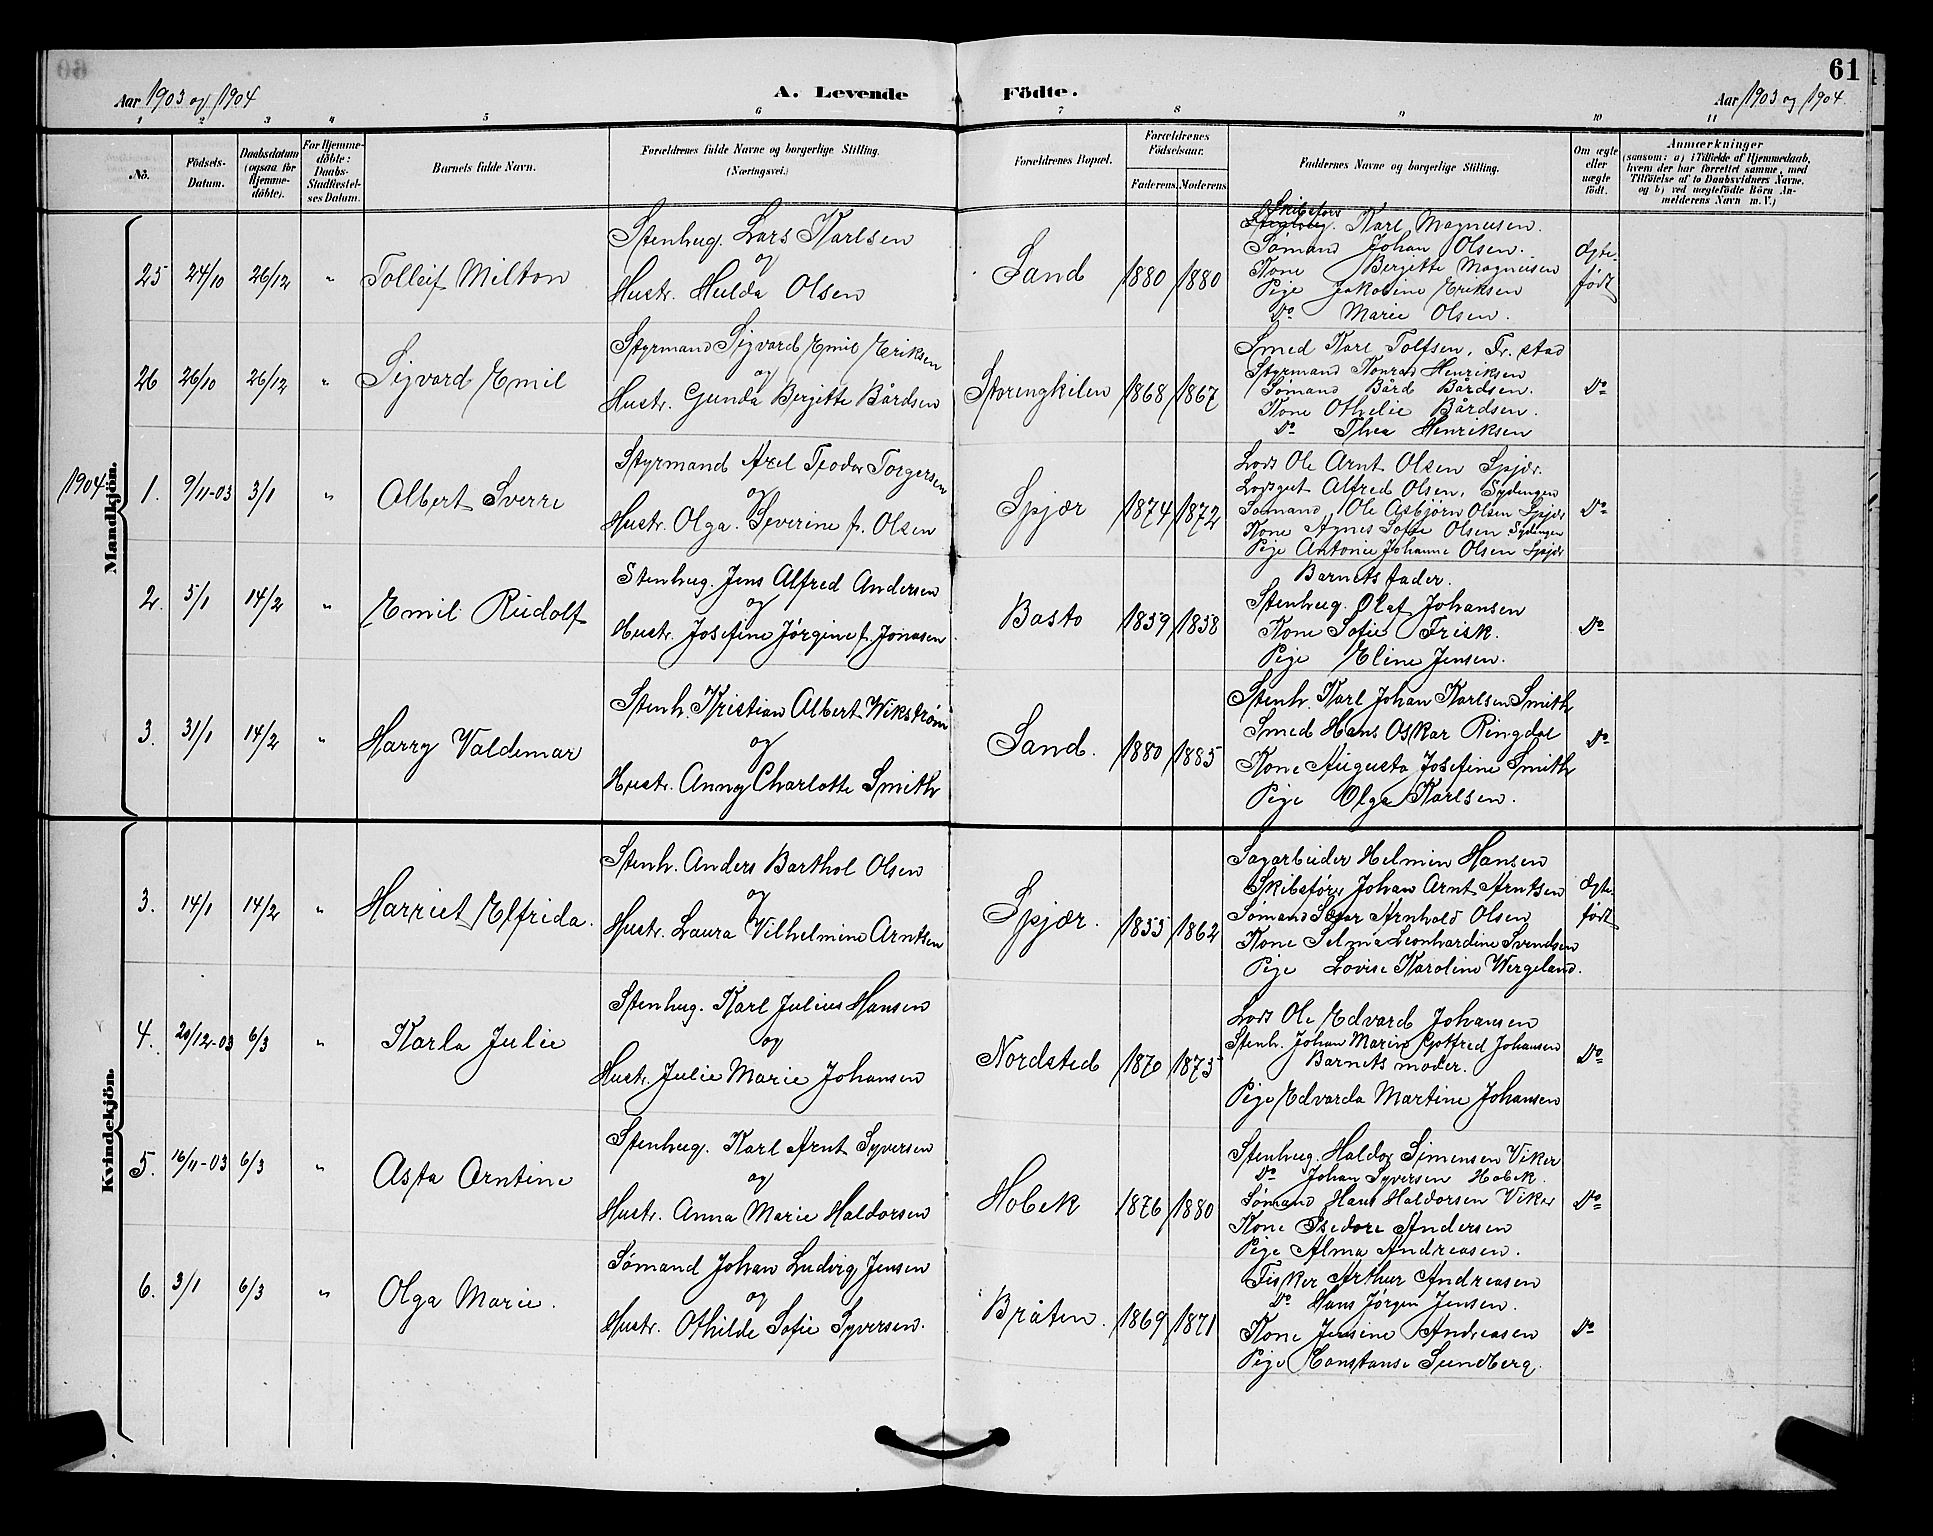 60
61
Aar 1903 og 1904
A. Levende
Födte.
Aar 1903 og 1904.
1 2 3 4 5 6 7 8 9 10 11
No.
Födsels-
Datum.
Daabsdatum
(ogsaa for
Hjemme-
döbte).
For Hjemme-
döbte:
Daabs-
Stadfæstel-
ses Datum.
Barnets fulde Navn.
Forældrenes fulde Navne og borgerlige Stilling.
(Næringsvei.)
Forældrenes Bopæl.
Forældrenes
Födselsaar.
Faderens. Moderens.
Faddernes Navne og borgerlige Stilling.
Om ægte
eller
uægte
födt.
Anmærkninger
(saasom: a) i Tilfælde af Hjemmedaab,
hvem der har forrettet samme, med
Tilföielse af to Daabsvidners Navne,
og b) ved uægtefödte Börn An-
melderens Navn m. V.)
Mandkjön.
25 24/10 26/12 " Tolleif Milton
Stenhug. Lars Karlsen
og
Hustr. Hulda Olsen
Sand 1880 1880
Skibsför
Karl Magnusen.
Sömand Johan Olsen.
Kone Bergitte Magnusen
Pige Jakobine Eriksen
Do Marie Olsen.
Ægte
födt
26 26/10 26/12 " Sigvard Emil
Styrmand Sigvard Emil Eriksen
og
Hustr. Gunda Bergitte Bårdsen
Storengkilen 1868 1867
Smed Karl Tolfsen, Fr.stad
Styrmand Konrad Henriksen
Sömand Bård Bårdsen.
Kone Othelie Bårdsen.
Do Thea Henriksen
Do
1904 1. 9/11-03 3/1 " Albert Sverre
Styrmand Axel Teodor Torgersen
og
Hustr. Olga Severine f. Olsen
Spjær 1874 1872
Lods Ole Arnt Olsen Spjær.
Lodsgut Alfred Olsen, Sydengen
Sömand Ole Asbjörn Olsen Spjær
Kone Agnes Sofie Olsen Sydengen
Pige Antonie Johanne Olsen Spjær
Do
2. 5/1 14/2 " Emil Rudolf
Stenhug. Jens Alfred Andersen
og
Hustr. Josefine Jørgine f. Jonasen
Basto 1859 1858
Barnets fader.
Stenhug. Olaf Johansen
Kone Sofie Frisk.
Pige Eline Jensen.
Do
3. 31/1 14/2 " Harry Valdemar
Stenh. Kristian Albert Wikstrøm
og
Hustr. Anny Charlotte Smith
Sand. 1880 1885
Stenh. Karl Johan Karlsen Smith
Smed Hans Oskar Ringdal
Kone Augusta Josefine Smith
Pige Olga Karlsen.
Do
Kvindekjön.
3. 14/1 14/2 " Harriet Elfrida.
Stenh. Anders Barthol Olsen
og
Hustr. Laura Vilhelmine Arntsen
Spjær. 1855 1862
Sagarbeider Helmin Hansen
Skibsförer Johan Arnt Arntsen
Sömand Arnhold Olsen
Kone Selma Leonhardine Svendsen
Pige Lovise Karoline Wergeland.
Ægte
födt
4. 20/12-03 6/3 " Karla Julie
Stenhug. Karl Julius Hansen
og
Hustr. Julie Marie Johansen
Nordsted 1870 1873
Lods Ole Edvard Johansen
Stenh. Johan Marin Gotfred Johansen
Barnets moder.
Pige Edvarda Martine Johansen
Do
5. 16/11-03 6/3 " Asta Arntine
Stenhug. Karl Arnt Syversen
og
Hustr. Anna Marie Haldorsen
Hobek 1876 1880
Stenhug. Haldor Simensen Viker
Do Johan Syversen Hobek.
Sömand Hans Haldorsen Viker
Kone Isedore Andersen
Pige Alma Andreasen.
Do
6. 3/1 6/3 " Olga Marie.
Sömand Johan Ludvig Jensen
og
Hustr. Othilde Sofie Syversen.
Bråten. 1869 1871
Fisker Arthur Andreasen
Do Hans Jörgen Jensen.
Kone Jensine Andreasen
Pige Konstanse Sundberg.
Do